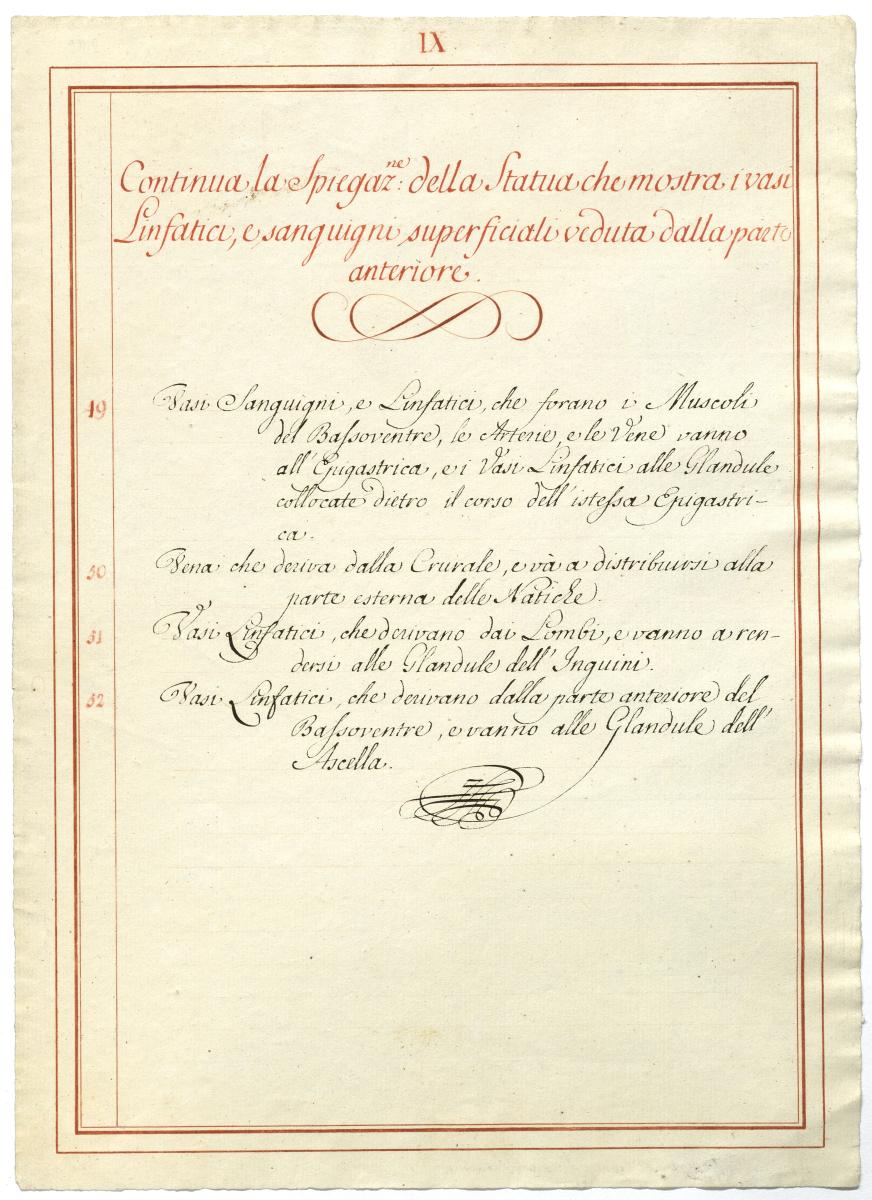 IX
Continua la Spiegaz.ne: della Statua che mostra i vasi
Linfatici, e sanguigni superficiali veduta dalla parte
anteriore.
49 Vasi Sanguigni, e Linfatici, che forano i Muscoli
del Bassoventre, le Arterie, e le Vene vanno
all'Epigastrica, e i Vasi Linfatici alle Glandule
collocate dietro il corso dell'istessa Epigastri-
ca.
50 Vena che deriva dalla Crurale, e và a distribuirsi alla
parte esterna delle Natiche.
51 Vasi Linfatici, che derivano dai Lombi, e vanno a ren-
dersi alle Glandule dell'Inguini.
52 Vasi Linfatici, che derivano dalla parte anteriore del
Bassoventre, e vanno alle Glandule dell'
Ascella.